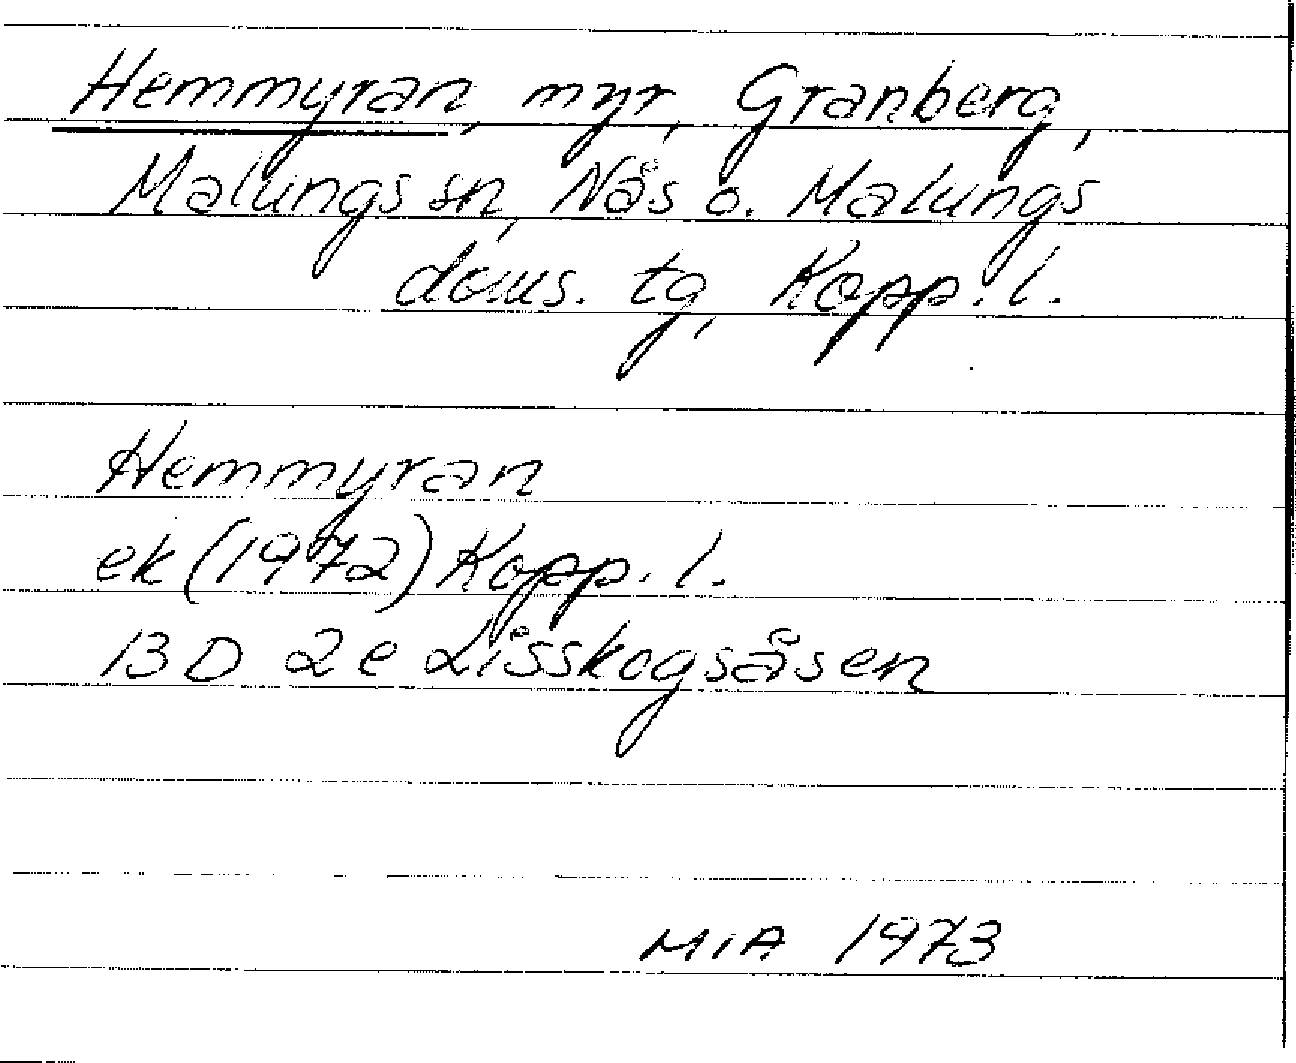 Hemmyran, myr, Granberg,
Malungs sn, Nås o. Malungs
doms. tg, Kopp. l.
Hemmyran
ek (1972) Kopp. l.
13 D 2e Lisskogsåsen
MIA 1973